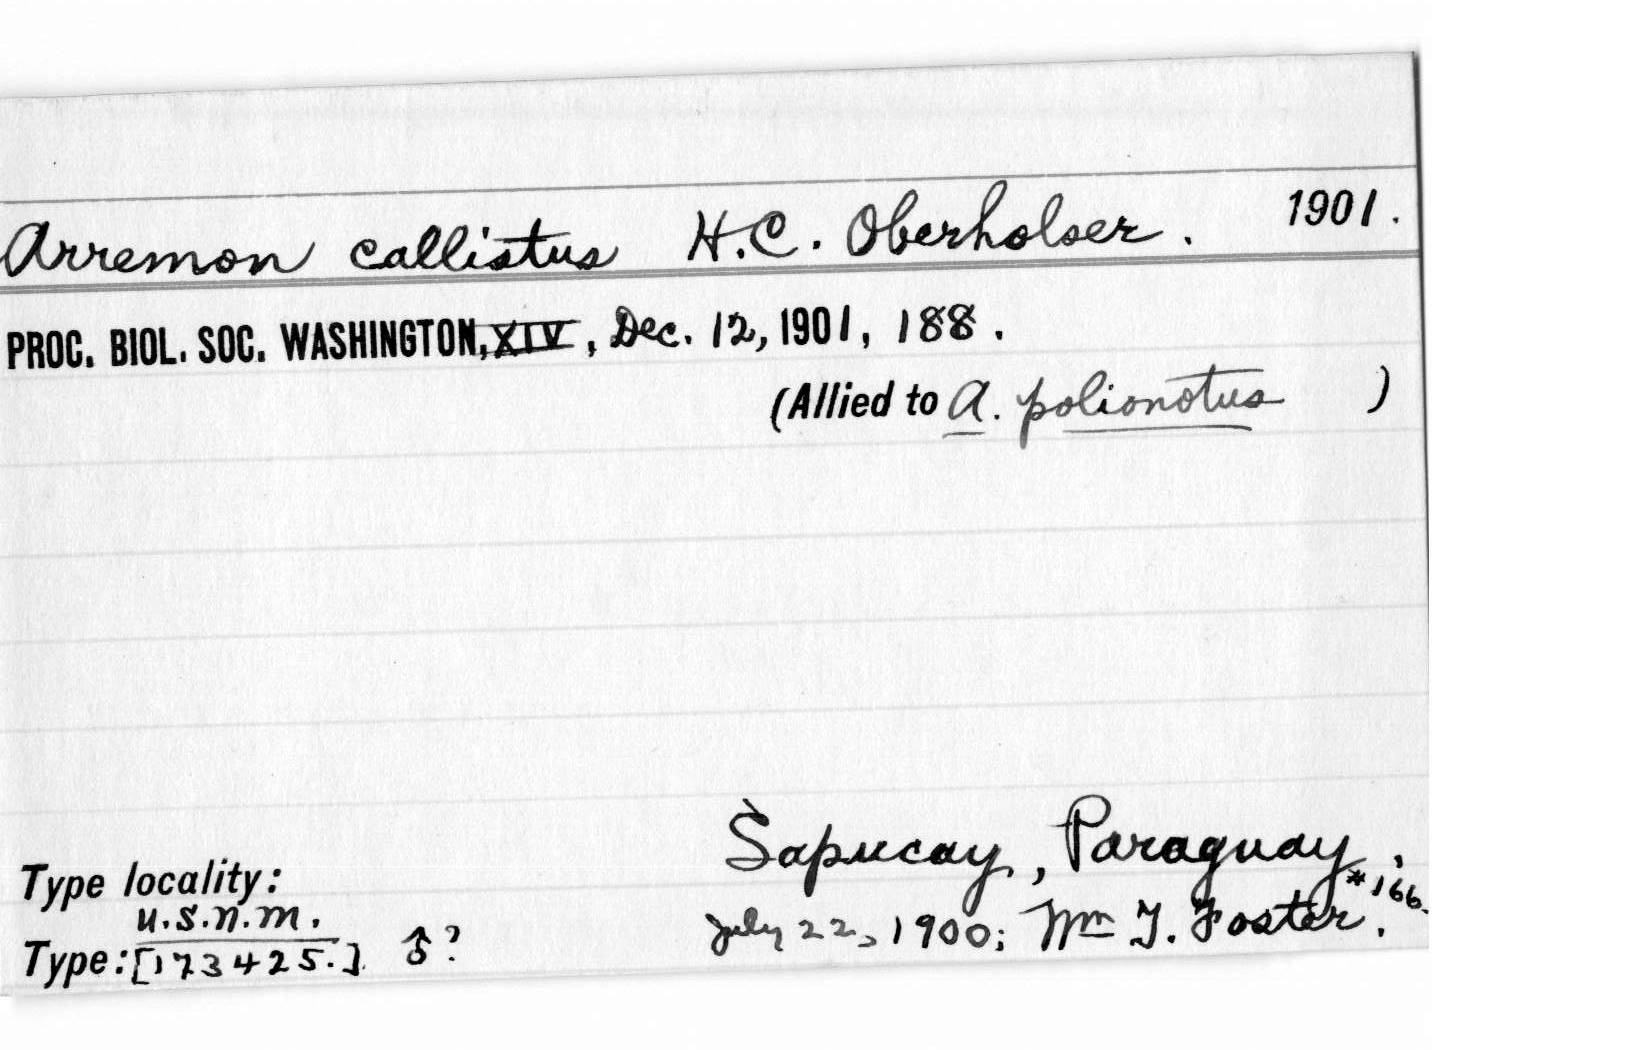 Arremon callistus H.C. Oberholser. 1901.
PROC. BIOL. SOC. WASHINGTON, XIV, Dec. 12, 1901, 188.
(Allied to A. polionotus )
Sapucay, Paraguay,
Type locality:
#166.
U.S.N.M.
July 22, 1900; Wm T. Foster.
Type: [173425.] ♂?